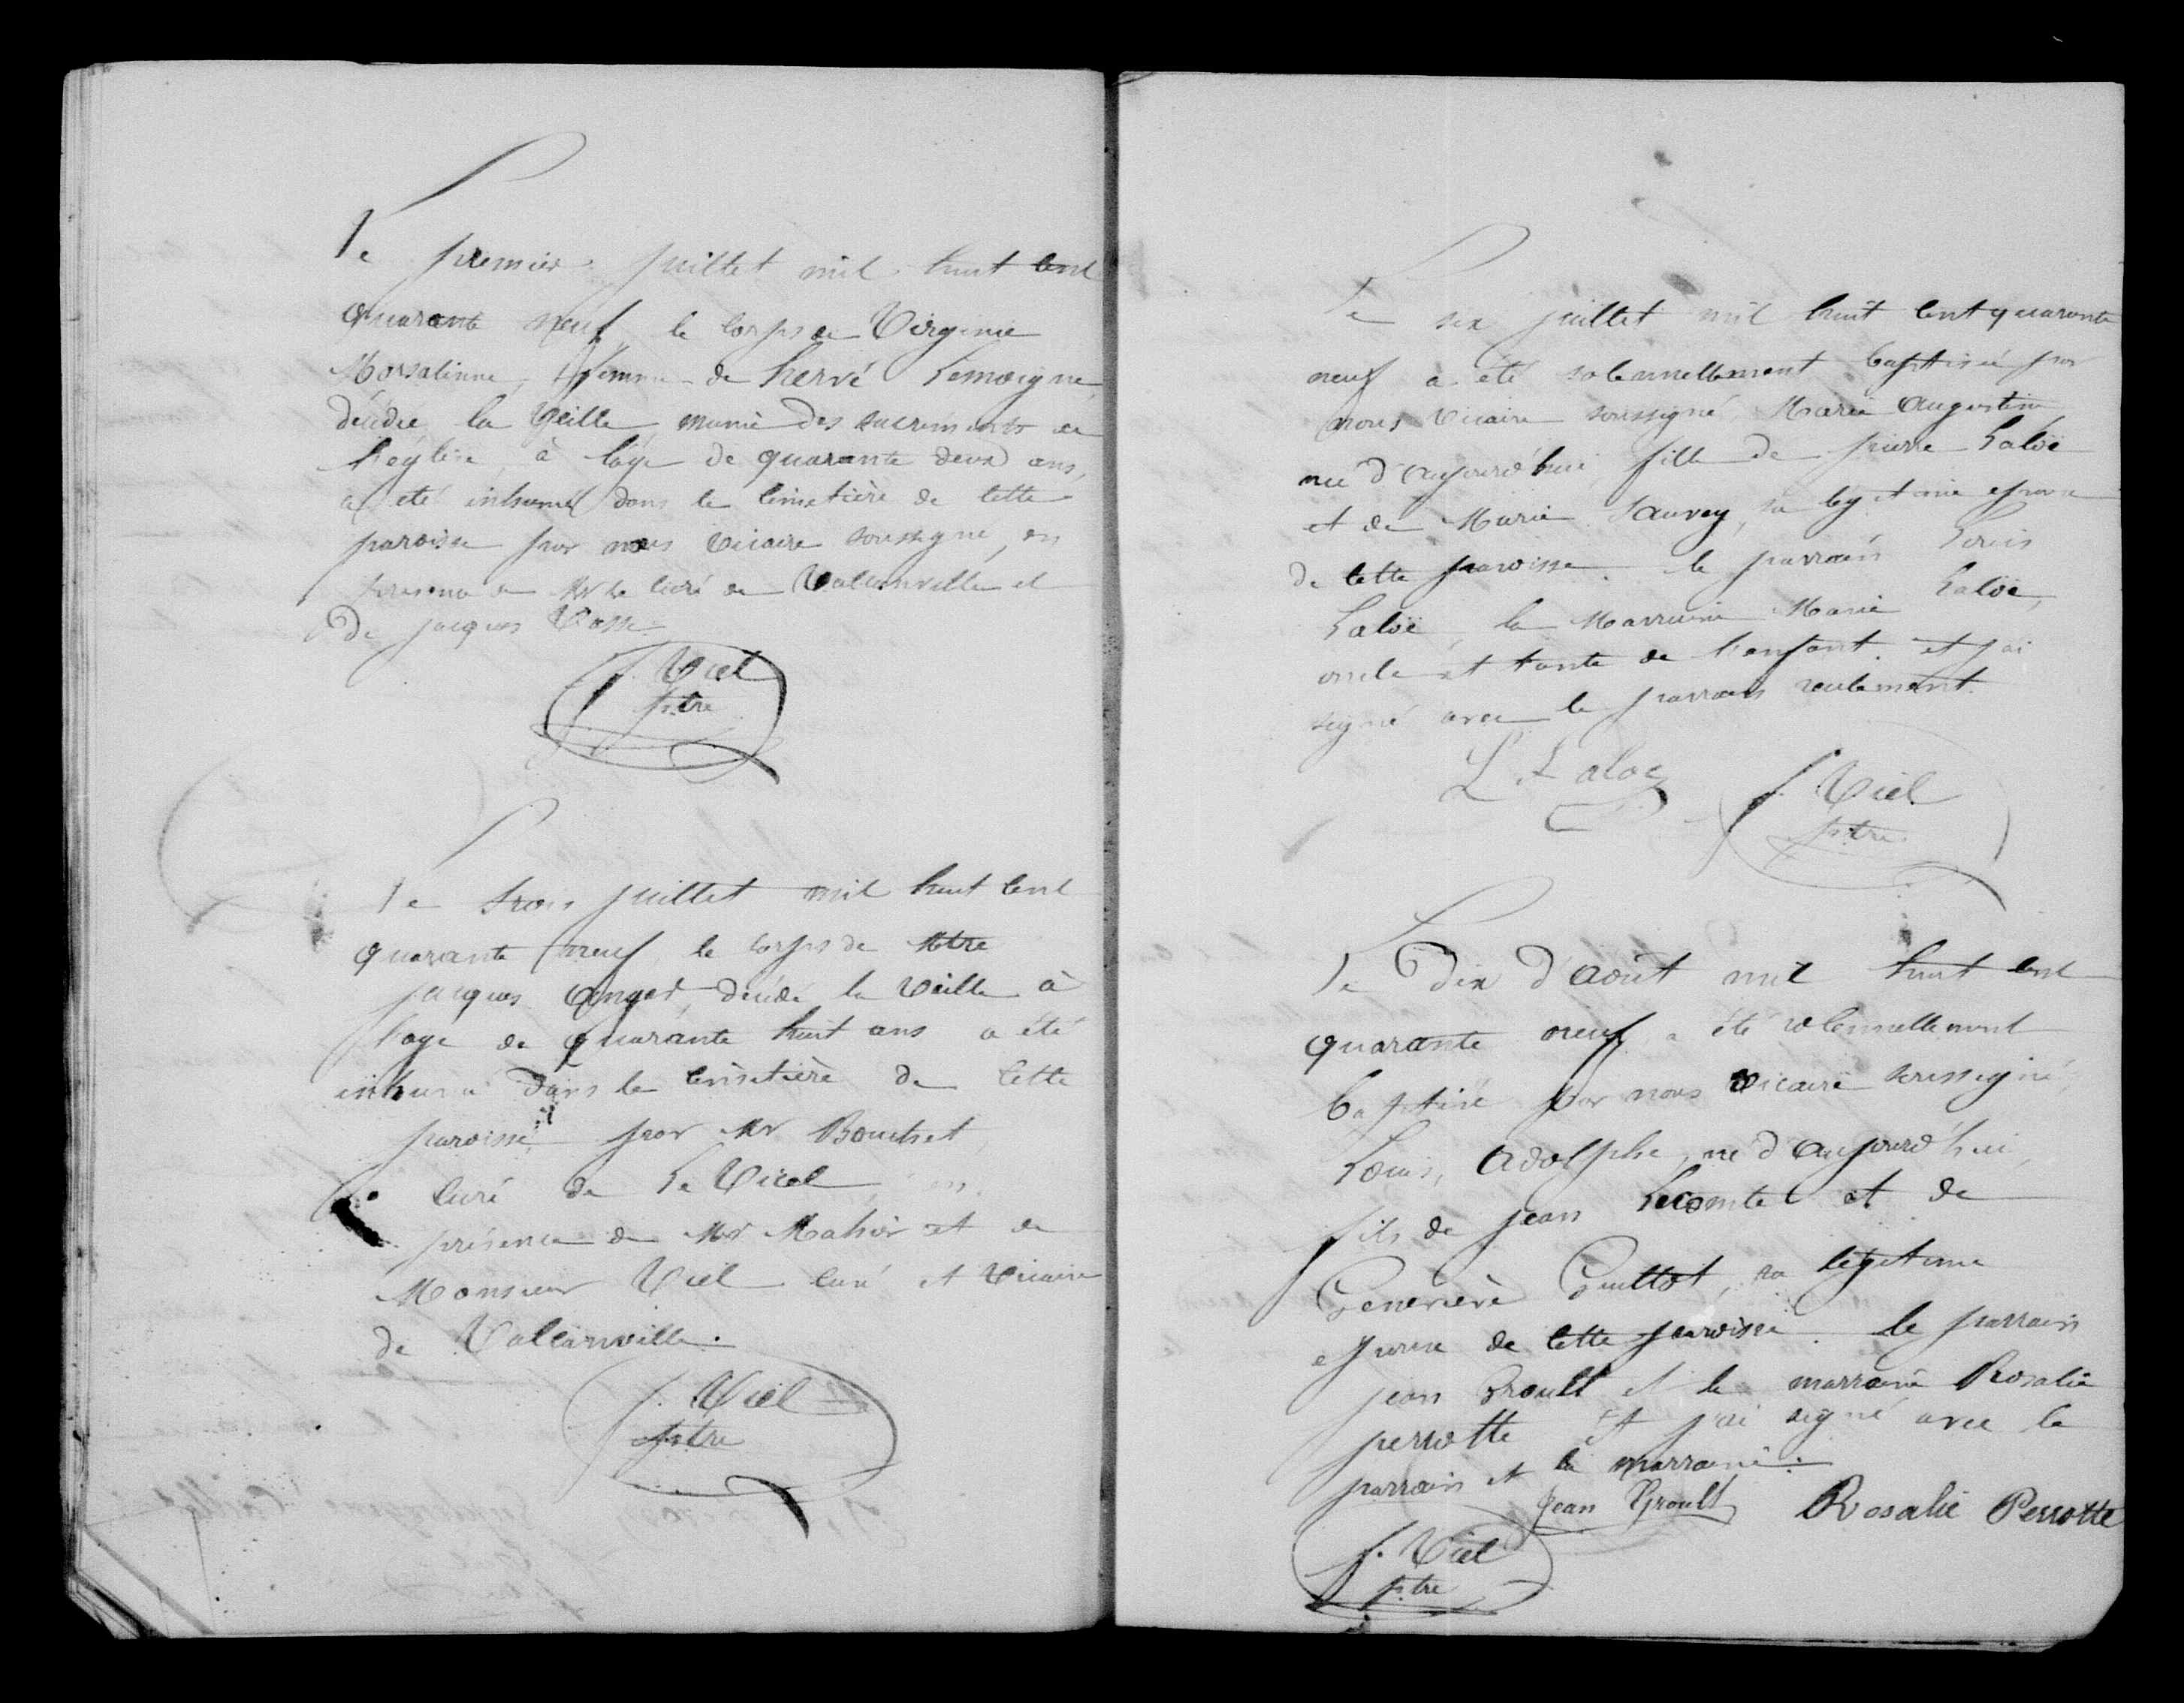 Le premier juillet mil huit cent
quarante neuf le corps de Virginie
Morsalinne, femme de hervé Lemoigne,
décédée la veille munie des sacrements de
l'église, à l'âge de quarante deux ans,
a été inhumé dans le cimetière de cette
paroisse par nous vicaire soussigné, en
présence de Mr le curé de Valcanville et
de jacques Vasse
f. Viel
ptre
Le trois juillet mil huit cent
quarante neuf le corps de Mtre
jacques décédé la veille à
l'âge de quarante huit ans a été
inhumé dans le cimetière de cette
paroisse, par Mr Bouchet,
curé de Le Vicel, en
présence de Mr Mahier et de
Monsieur Viel curé et vicaire
de Valcanville.
f. Viel
ptre
Le six juillet mil huit cent quarante
neuf a été solennellement baptisée par
nous vicaire soussigné, Marie Augustine
née d'aujourd'hui fille de pierre Laloë
et de Marie Sauvey, sa légitime épouse
de cette paroisse. le parrain Louis
Laloë, la Marraine Marie Laloë,
oncle et tante de l'enfant. et j'ai
signé avec le parrain seulement.
L. Laloe
f. Viel
ptre
Le Dix d'août mil huit cent
quarante neuf a été solennellement
baptisé par nous vicaire soussigné,
Louis, Adolphe, né d'aujourd'hui,
fils de jean Lecomte et de
Geneviève Guillot, sa légitime
épouse de cette paroisse. le parrain
jean Groult et la marraine Rosalie
perrotte et j'ai signé avec le
parrain et la marraine.
Jean Groult Rosalie Perrotte
f. Viel
ptre